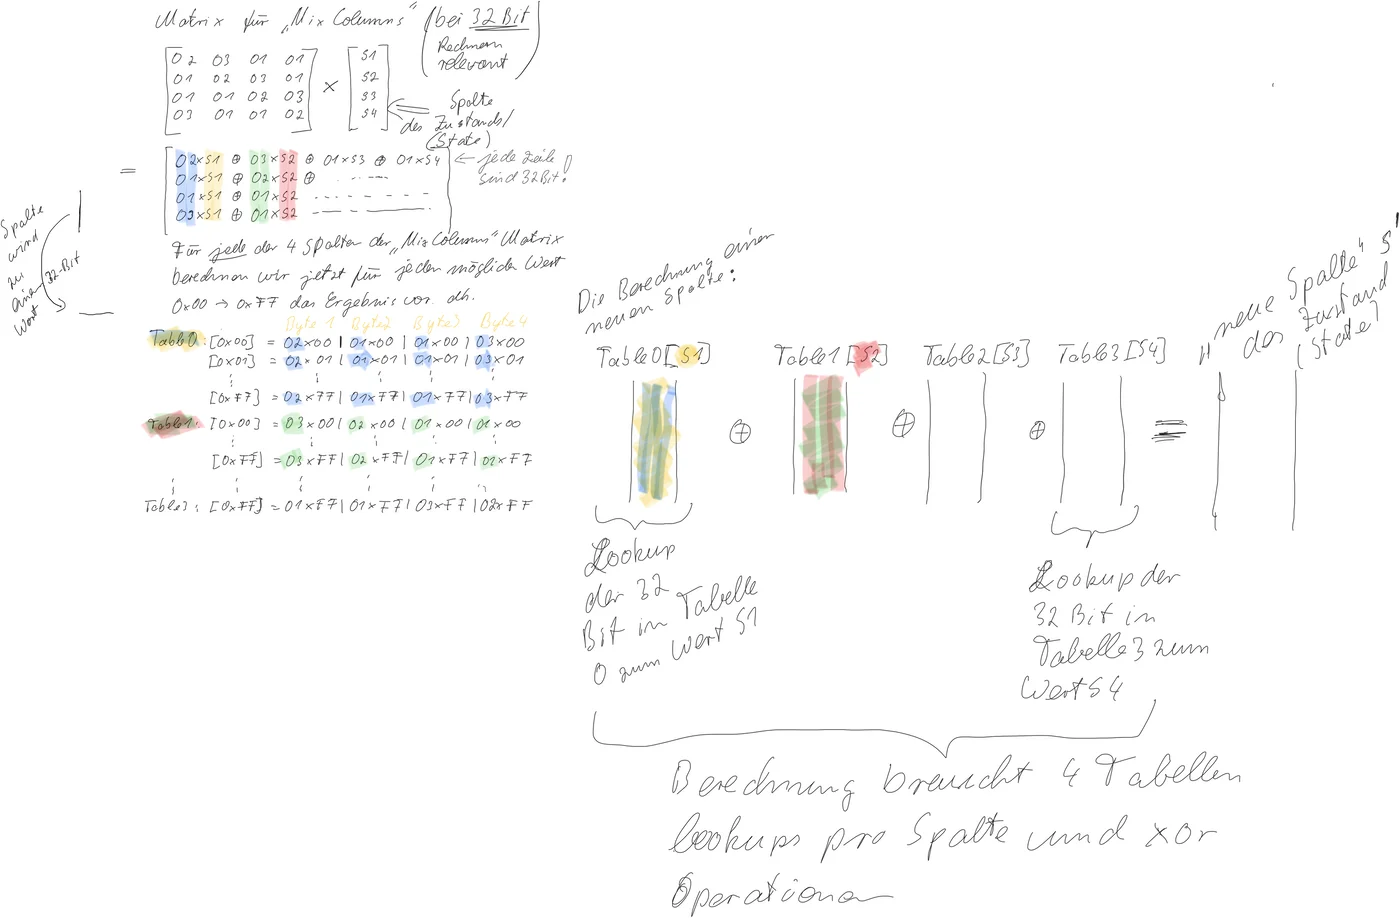 Matrix für „Mix Columns" (bei 32 Bit
Rechnern
relevant)
02 03 01 01
01 02 03 01
01 01 02 03
03 01 01 02
×
S1
S2
S3
S4
⇐ Spalte
des Zustands/
(State)
=
02×S1 ⊕ 03×S2 ⊕ 01×S3 ⊕ 01×S4
01×S1 ⊕ 02×S2 ⊕ ....
01×S1 ⊕ 01×S2 ....
03×S1 ⊕ 01×S2
← jede Zeile
sind 32Bit!
Spalte
wird
zu
einem
32-Bit
Wort
Für jede der 4 Spalten der „MixColumns" Matrix
berechnen wir jetzt für jeden möglichen Wert
0x00 → 0xFF das Ergebnis vor. dh.
Byte 1 Byte2 Byte3 Byte4
Table0: [0x00] = 02×00 | 01×00 | 01×00 | 03×00
[0x01] = 02×01 | 01×01 | 01×01 | 03×01
[0xFF] = 02×FF | 01×FF | 01×FF | 03×FF
Table1: [0x00] = 03×00 | 02×00 | 01×00 | 01×00
[0xFF] = 03×FF | 02×FF | 01×FF | 01×FF
Table3: [0xFF] = 01×FF | 01×FF | 03×FF | 02×FF
Die Berechnung einer
neuen Spalte:
Table0[S1] Table1[S2] Table2[S3] Table3[S4]
⊕ ⊕ ⊕ =
„neue Spalte" S'
des Zustand
(State)
Lookup
der 32
Bit in Tabelle
0 zum Wert S1
Lookup der
32 Bit in
Tabelle 3 zum
Wert S4
Berechnung braucht 4 Tabellen
lookups pro Spalte und xor
Operationen